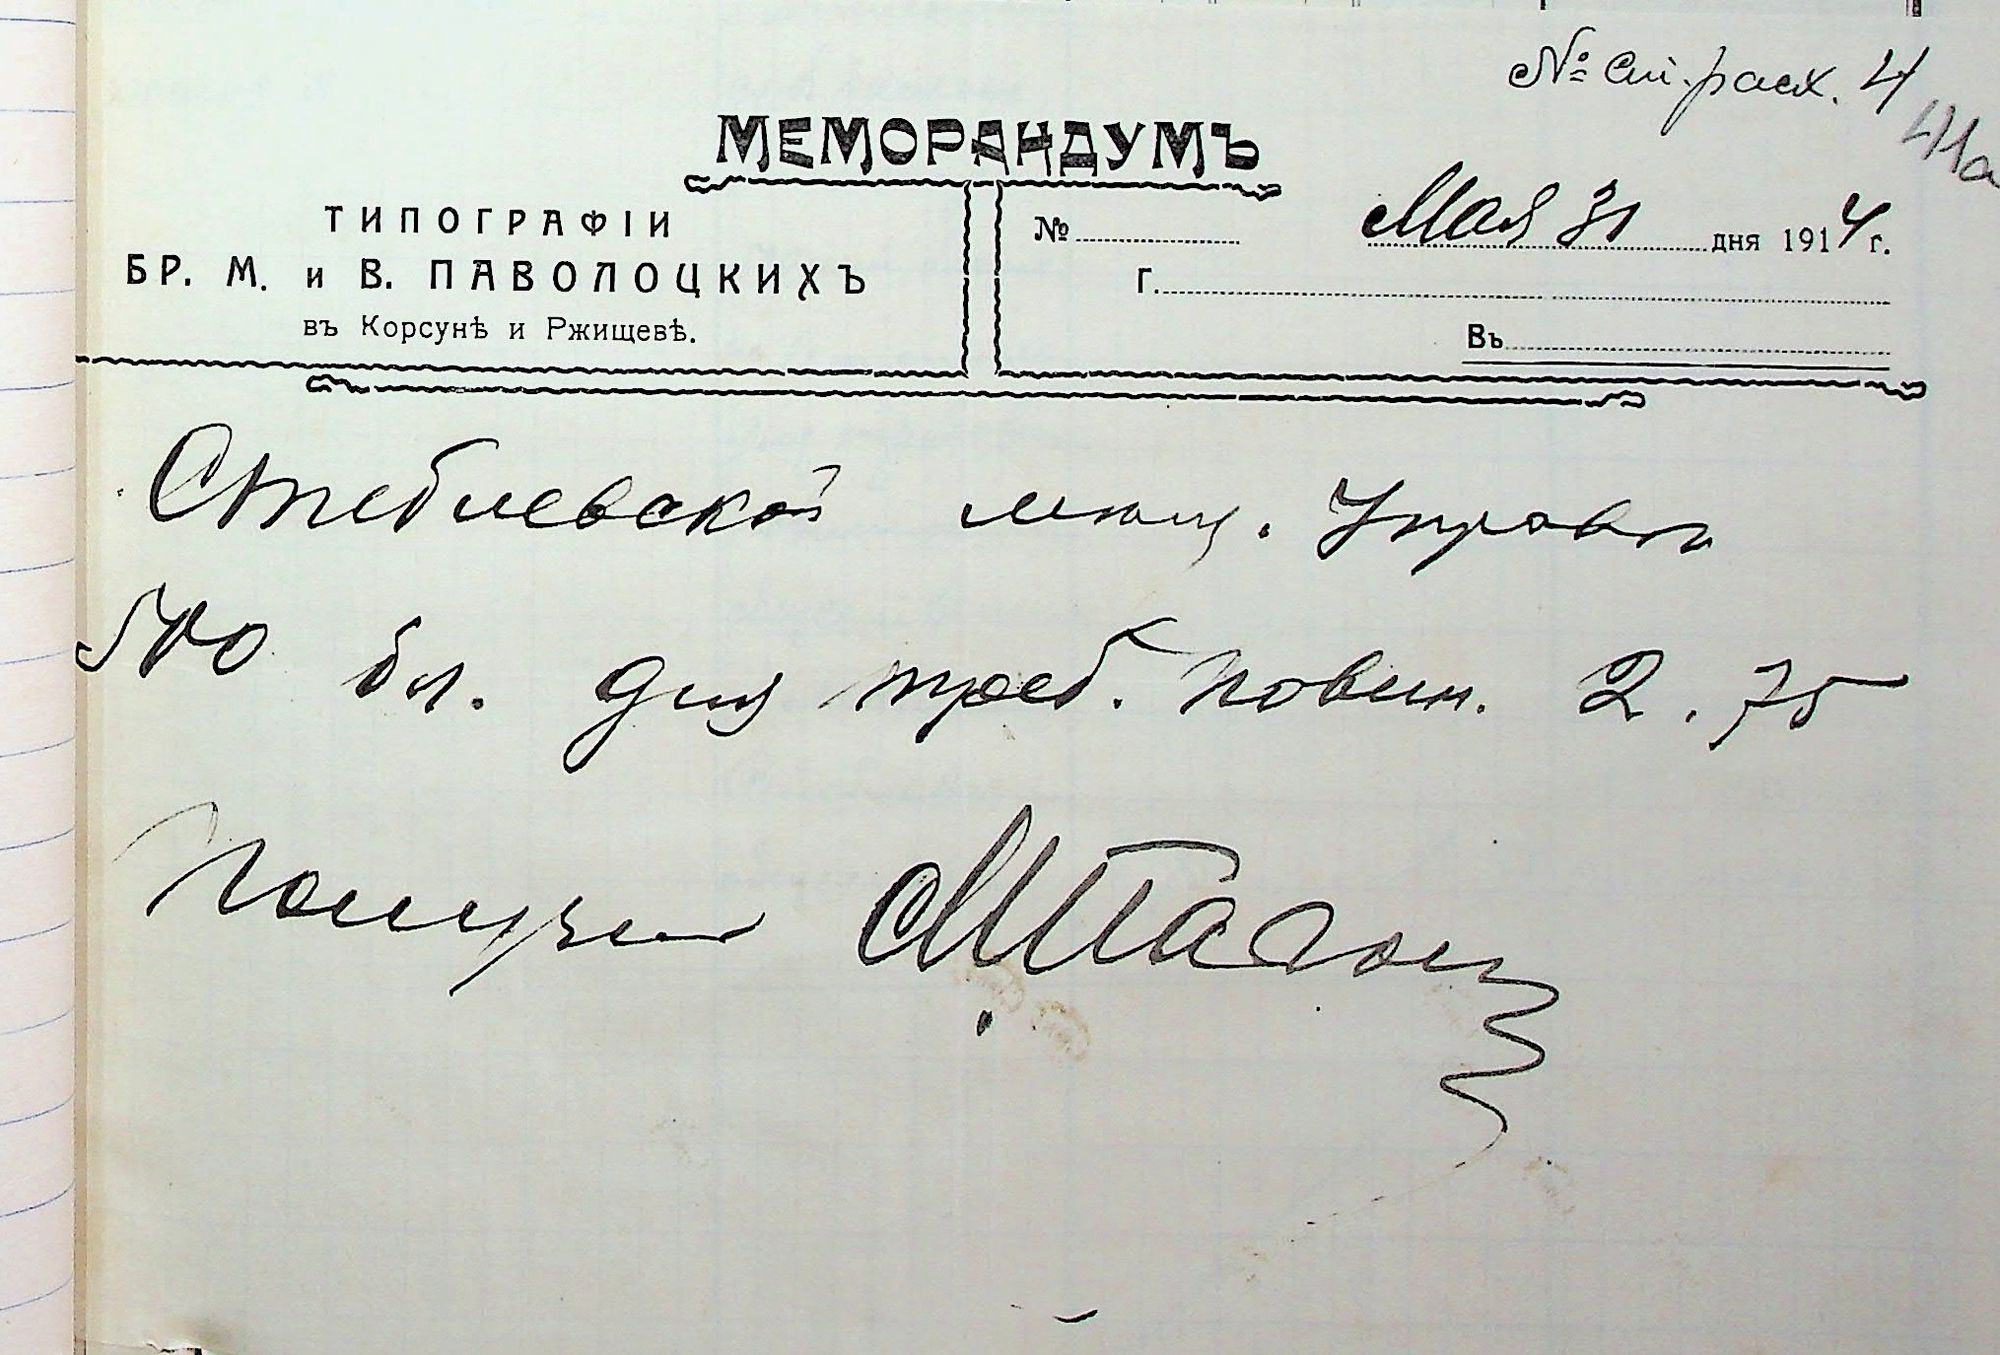 № ст. расх. 4
41а
МЕМОРАНДУМЪ
ТИПОГРАФІИ
БР. М. и В. ПАВОЛОЦКИХЪ
въ Корсунѣ и Ржищевѣ.
№ Мая 31 дня 1914 г.
Г.
Въ
Стеблевской мѣщ. Управѣ
500 бл. для треб. повин. 2.75
Получил М Павол